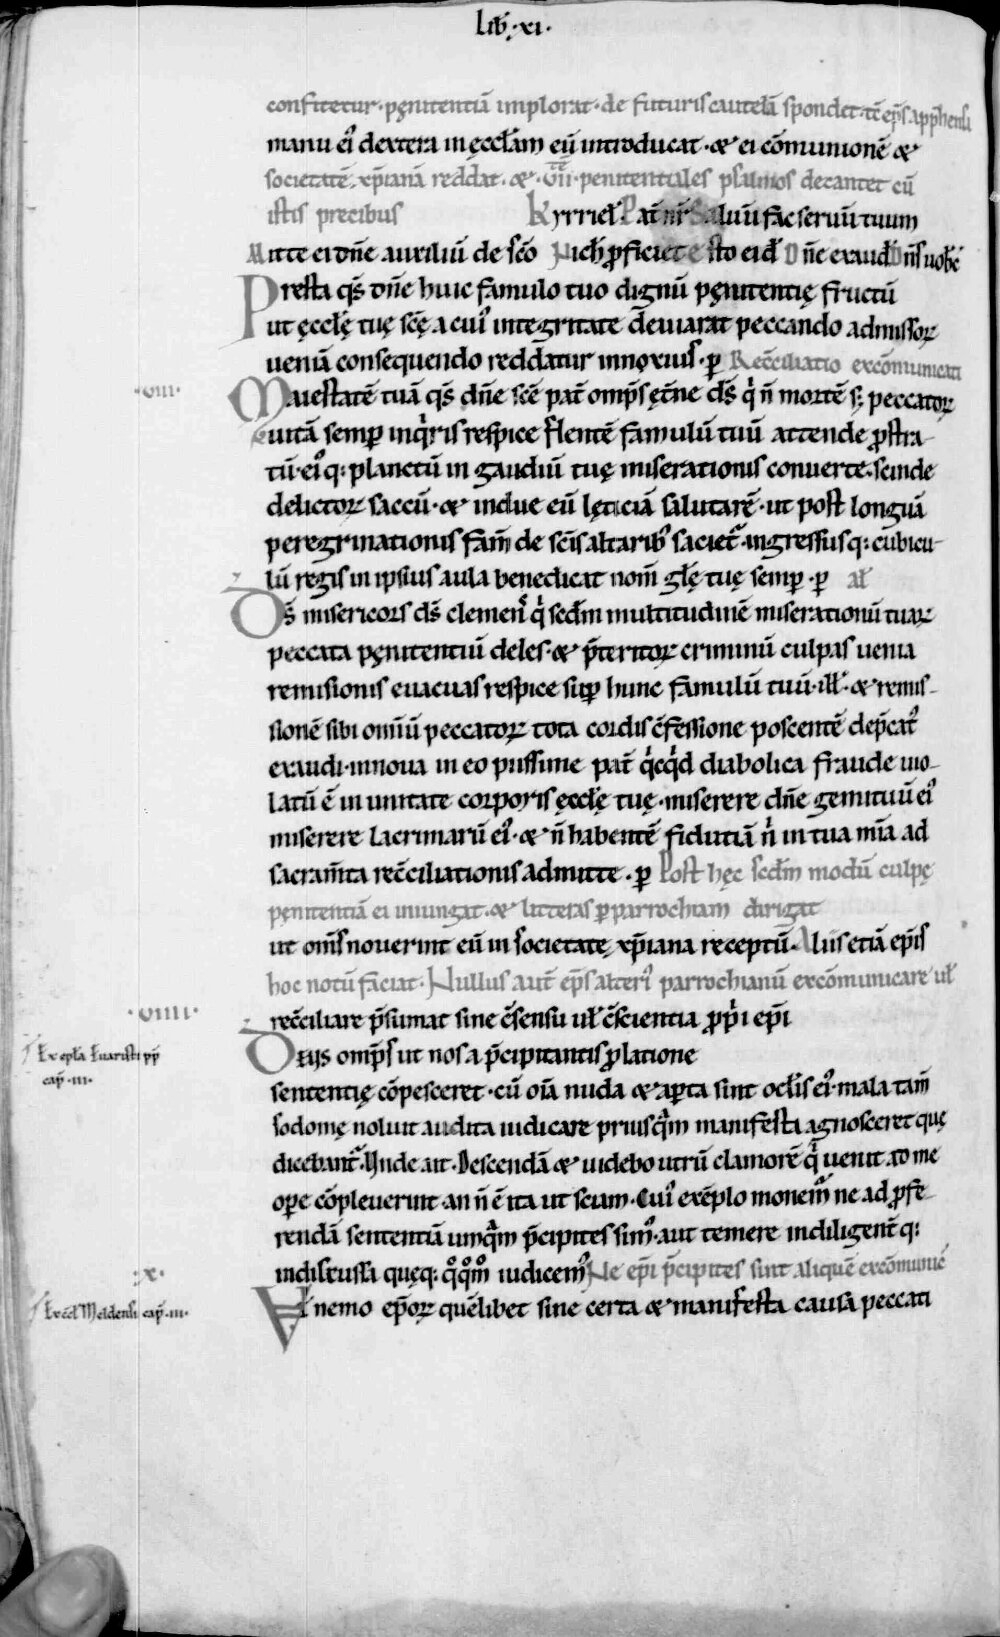 Lib̄ ·xi·
confitetur· pęnitentiā implorat· de futuris cautelā spondet· tc̄ ep̄s app̄hensa
manu ei᾿ dextera in ęcclām eū introducat· & ei cōmunionē &
societatē xp̄ianā reddat· &· vii· penitentiales psalmos decantet cū
istis precibus Kyrriel̄· Pat̄ nr̄ Saluū fac seruū tuum
Mitte ei dn̄e auxiliū de sc̄o Nich̄ p̄ficiet Esto ei d̄ Dn̄e exaud̄ Dn̄s uob̄c̄
Presta qs̄ dn̄e huic famulo tuo dignū pęnitentię fructū
ut ęccl̄ę tuę sc̄ę a cui᾿ integritate deuiarat peccando admissoꝝ
ueniā consequendo reddatur innoxius· ꝑ Rec̄ciliatio excōmunicati
·viii·
Maiestatē tuā qs̄ dn̄e sc̄e pat̄ omp̄s ęt̄ne ds̄ q̇ n̄ mortē s; peccatoꝝ
uitā semꝑ inq̇ris respice flentē famulū tuū attende ꝓstra-
tū· ei᾿q; planctū in gaudiū tuę miserationis conuerte· scinde
delictoꝝ saccū· & indue eū lęticiā salutarē· ut post longuā
peregrinationis fam̄ de sc̄is altarib᾿ saciet᾿· ingressusq; cubicu-
lū regis in ipsius aula benedicat nom̄ gl̄ę tuę semꝑ· ꝑ al̄
Ds̄ misericors ds̄ clemens q̇ sed̄m multitudinē miserationū tuaꝝ
peccata pęnitentiū deles· & p̄teritoꝝ criminū culpas uenia
remisionis euacuas respice suꝑ hunc famulū tuū· ill̄· & remis-
sionē sibi omniū peccatoꝝ tota cordis c̄fessione poscentē dep̄cat᾿
exaudi· innoua in eo piissime pat̄ q̇cq̇d diabolica fraude uio-
latū ē in unitate corporis ęccl̄ę tuę· miserere dn̄e gemituū ei᾿
miserere lacrimarū ei᾿· & n̄ habentē fidutiā n̄ in tua mīa ad
sacram̄ta rec̄ciliationis admitte· ꝑ Post hęc sed̄m modū culpę
pęnitentiā ei iniungat· & litteras ꝑ parrochiam dirigat
ut om̄s nouerint eū in societate xp̄iana receptū· Aliis etiā ep̄is
hoc notū faciat· Nullus aut̄ ep̄s alteri᾿ parrochianū excōmunicare ul̄
·viiii·
rec̄ciliare p̄sumat sine c̄sensu ul̄ c̄scientia ꝓp̄i ep̄i
Ex epl̄a Euaristi pp̄
cap̄· iii·
Deus omp̄s ut nos a p̄cipitantis ꝓlatione
sententię cōpesceret· cū oīa nuda & aꝑta sint ocl̄is ei᾿· mala tam̄
sodomę noluit audita iudicare priusq̄m manifesta agnosceret quę
dicebant᾿· Unde ait· Descendā & uidebo utrū clamorē q̇ uenit ad me
oꝑe cōpleuerint· an n̄ ē ita ut sciam· Cui᾿ exēplo monem᾿ ne ad ꝓfe-
rendā sententiā umq̄m p̄cipites sim᾿· aut temere indiligent̄q;
·x·
indiscussa quęq; q°q°m° iudicem᾿ Ne ep̄i p̄cipites sint aliquē excōmunic̄
Ex cc̄l Meldensi cap̄· iii·
Vt nemo ep̄oꝝ quēlibet sine certa & manifesta causa peccati